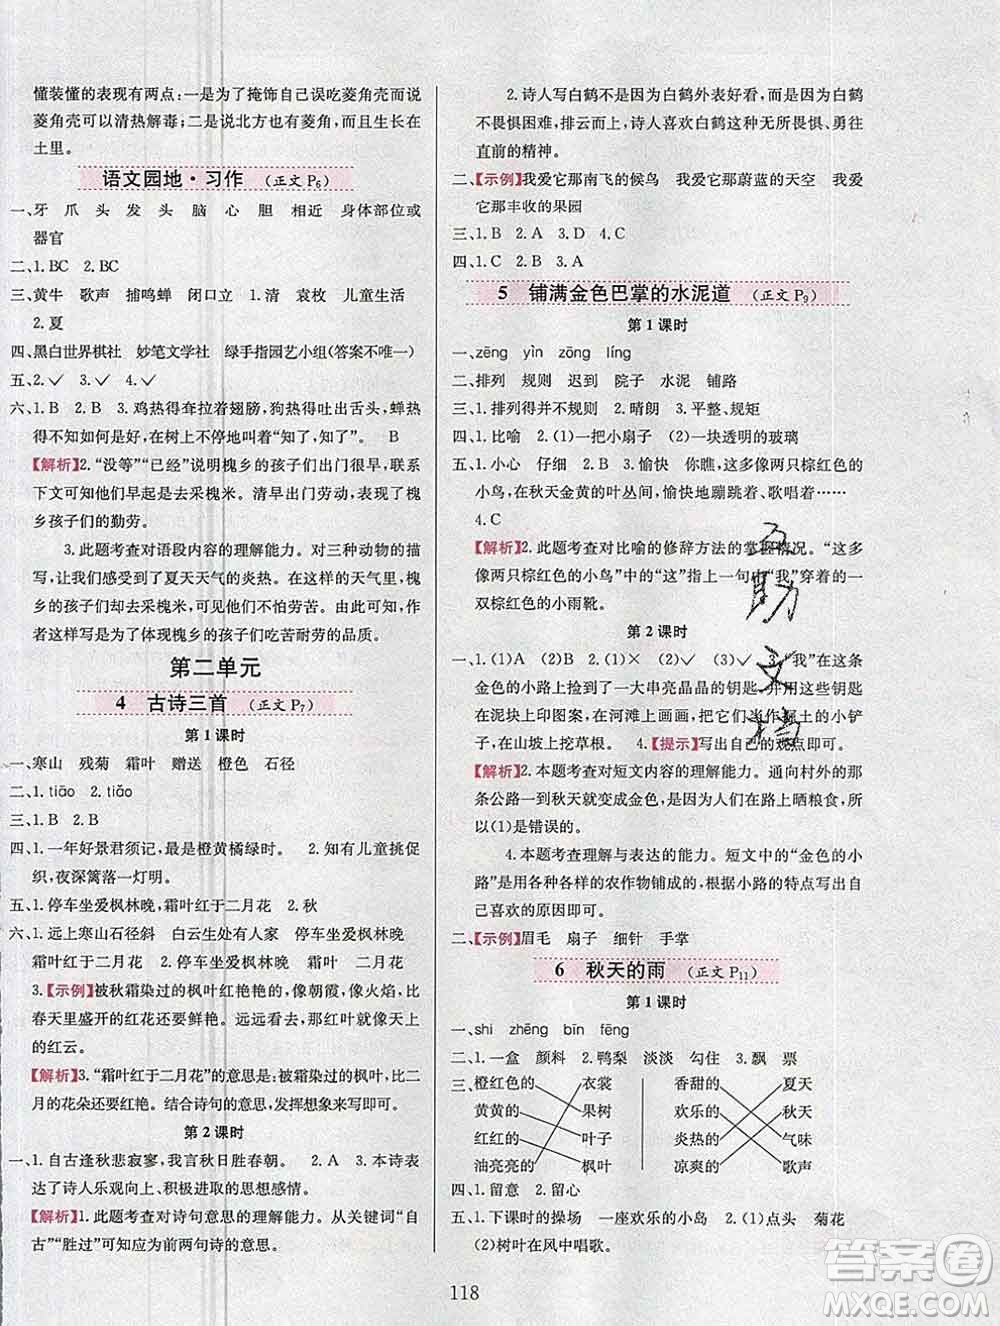 懂装懂的表现有两点:一是为了掩饰自己误吃菱角壳而说
菱角壳可以清热解毒;二是说北方也有菱角,并生长在
土里。
语文园地·习作 (正文 P6)
一、牙 爪 头 发 头 脑 心 胆 相近 身体部位或
器官
二、1.BC 2.BC
三、黄牛 歌声 捕鸣蝉 闭口立 1.清 袁枚 儿童生活
2.夏
四、黑白世界棋社 妙笔文学社 绿手指园艺小组(答案不唯一)
五、2.✓ 3.✓ 4.✓
六、1.B 2.B 3.鸡热得耷拉着翅膀,狗热得吐出舌头,蝉热
得割人,在树上不停地叫着“知了,知了”。 B
【解析】2.“没等”“已经”说明槐乡的孩子们出门很早,联系
下文可知他们早起是去采槐米。清早出门劳动,表现了槐
乡孩子们的勤劳。
3.此题考查对语段内容的理解能力。对三种动物的描
写,让我们感受到了夏天天气的炎热。在这样的天气里,槐
乡的孩子们却去采槐米,并不惧怕劳苦。由此可以得出,
作者这样写是为了体现槐乡的孩子们吃苦耐劳的品质。
第二单元
4 古诗三首 (正文 P7)
第 1 课时
一、寒山 残菊 霜叶 赠送 橙色 石径
二、1.tiāo 2.tiǎo
三、1.B 2.B
四、1.一年好景君须记,最是橙黄橘绿时。 2.知有儿童挑促
织,夜深篱落一灯明。
五、1.停车坐爱枫林晚,霜叶红于二月花 2.秋
六、1.远上寒山石径斜 白云生处有人家 停车坐爱枫林晚
霜叶红于二月花 2.停车坐爱枫林晚 霜叶红于二月花
3.【示例】被秋霜染过的枫叶红艳艳的,像朝霞,像火焰,比
春天里盛开的红花还要鲜艳。远远看去,红叶就像天边的
红云。
【解析】3.“霜叶红于二月花”的意思是:被秋霜染过的枫叶,比二
月的花朵还红艳。结合诗句的意思,发挥想象来写即可。
第 2 课时
一、1.自古逢秋悲寂寥,我言秋日胜春朝。 2.A 3.本诗表
达了诗人乐观向上、积极进取的思想感情。
【解析】1.此题考查对诗句意思的理解能力。从关键词“自
古”“胜过”可知应为前两句诗的意思。
2.诗人写白鹤不是为了表现白鹤外表好看,而是因为白鹤
不畏惧困难,排云而上,诗人喜欢白鹤这种不畏惧、勇往
直前的精神。
二、【示例】我爱它那南飞的候鸟 我爱它那蔚蓝的天空 我爱
它那丰收的果园
三、1.B 2.A 3.D 4.C
四、1.C 2.B 3.A
5 铺满金色巴掌的水泥道 (正文 P9)
第 1 课时
一、zēng yìn zōng líng
二、排列 规则 迟到 院子 水泥 铺路
三、1.排列得并不规则 2.晴朗 3.平整、规矩
四、1.比喻 2.(1)一把小扇子 (2)一块透明的玻璃
五、1.小心 仔细 2.B 3.愉快 你瞧,这多像两只棕红色的
小鸟,在秋天金黄的叶丛间,愉快地蹦跳着、歌唱着……
4.C
【解析】2.此题考查对比喻的修辞方法的掌握情况。“这多
像两只棕红色的小鸟”中的“这”指上一句中“我”穿着的一
双棕红色的小雨靴。
第 2 课时
一、1.(1)A (2)B 2.(1)× (2)✓ 3.“我”在这条
金色的小路上捡到了一大串亮晶晶的钥匙,并用这些钥匙
在泥块上印图案,在河滩上画画,把它们当作掘土的小铲
子,在山坡上挖草根。 4.【提示】写出自己的观点即可。
【解析】2.本题考查对短文内容的理解能力。通向村外的那
条公路一到秋天就变成金色,是因为人们在路上晒粮食,所
以(1)是错误的。
4.本题考查理解与表达的能力。短文中的“金色的小
路”是由各种各样的农作物铺成的,根据小路的特点写出自
己喜欢的原因即可。
二、【示例】眉毛 扇子 细针 手掌
6 秋天的雨 (正文 P11)
第 1 课时
一、shi zhēng bīn fēng
二、1.一盒 颜料 2.鸭梨 淡淡 勾住 3.飘 票
三、橙红色的 衣裳 香甜的 夏天
黄黄的 果树 欢乐的 秋天
红红的 叶子 炎热的 气味
油亮亮的 枫叶 凉爽的 歌声
四、1.留意 2.留心
五、1.下课时的操场 一座欢乐的小岛 2.(1)点头 菊花
(2)树叶在风中唱歌。
118
互助文档
答案圈
MXQE.COM